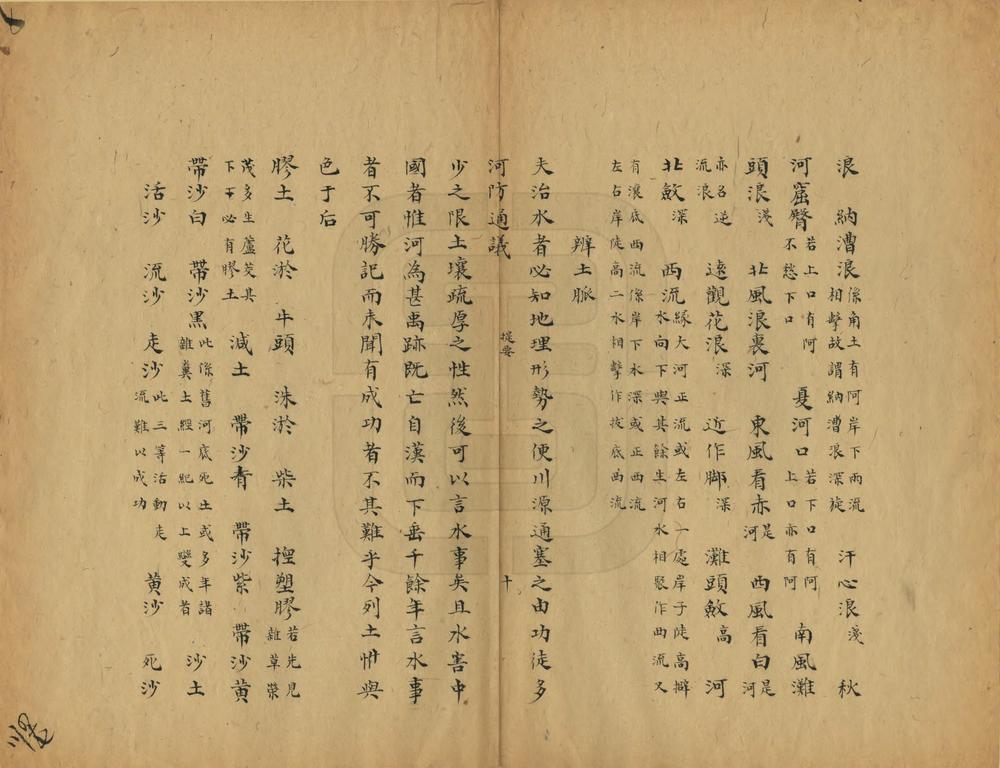 浪　納漕浪
係角土有阿岸下兩流
相擊故謂納漕浪深旋
汗心浪淺　秋
河窟臀
若上口有阿
不愁下口
夏河口
若下口有阿
上口亦有阿
南風灘
頭浪淺　北風浪裏河　東風看赤是河　西風看白是河
亦名逆
流浪
遠觀花浪深　近作脚深　灘頭斂高　河
北斂深　西流
緣大河正流或左右一處岸子陡高擗
水向下與其餘生河水相聚作西流又
有滾底西流係岸下水深或正西流
左右岸陡高二水相擊作拔底西流
辨土脈
夫治水者必知地理形勢之便川源通塞之由功徒多
河防通議　提要　十
少之限土壤疏厚之性然後可以言水事矣且水害中
國者惟河為甚禹跡既亡自漢而下垂千餘年言水事
者不可勝記而未聞有成功者不其難乎今列土與
色于后
膠土　花淤　牛頭　沫淤　柴土　揑塑膠
若先見
雜草榮
茂多生蘆茭其
下下必有膠土
減土　帶沙青　帶沙紫　帶沙黃
帶沙白　帶沙黑
此係舊河底死土或多年諸
雜糞土經一紀以上變成者
沙土
活沙　流沙　走沙
此三等活動走
流難以成功
黄沙　死沙